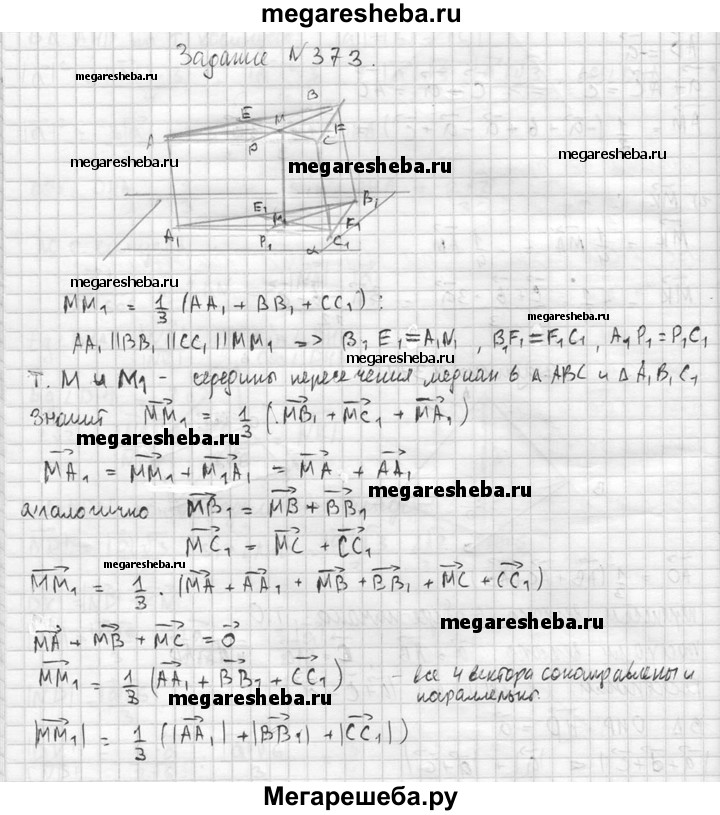 megaresheba.ru
Задание N 373.
megaresheba.ru
B
E M
A F
P C
megaresheba.ru
megaresheba.ru
megaresheba.ru
B₁
E₁ M₁
A₁ P₁ F₁
C₁
α
megaresheba.ru
MM₁ = 1/3 (AA₁ + BB₁ + CC₁):
megaresheba.ru
AA₁ || BB₁ || CC₁ || MM₁ => B₁E₁ = A₁N₁, B₁F₁ = F₁C₁, A₁P₁ = P₁C₁
megaresheba.ru
т. M и M₁ - середины пересечения медиан в Δ ABC и Δ A₁B₁C₁
значит MM₁→ = 1/3 (MB₁→ + MC₁→ + MA₁→)
megaresheba.ru
MA₁→ = MM₁→ + M₁A₁→ = MA→ + AA₁→
megaresheba.ru
аналогично MB₁→ = MB→ + BB₁→
MC₁→ = MC→ + CC₁→
megaresheba.ru
MM₁→ = 1/3 · (MA→ + AA₁→ + MB→ + BB₁→ + MC→ + CC₁→)
megaresheba.ru
MA→ + MB→ + MC→ = 0→
MM₁→ = 1/3 (AA₁→ + BB₁→ + CC₁→) - все 4 вектора сонаправлены и
параллельны.
megaresheba.ru
|MM₁→| = 1/3 (|AA₁→| + |BB₁→| + |CC₁→|)
Мегарешеба.ру